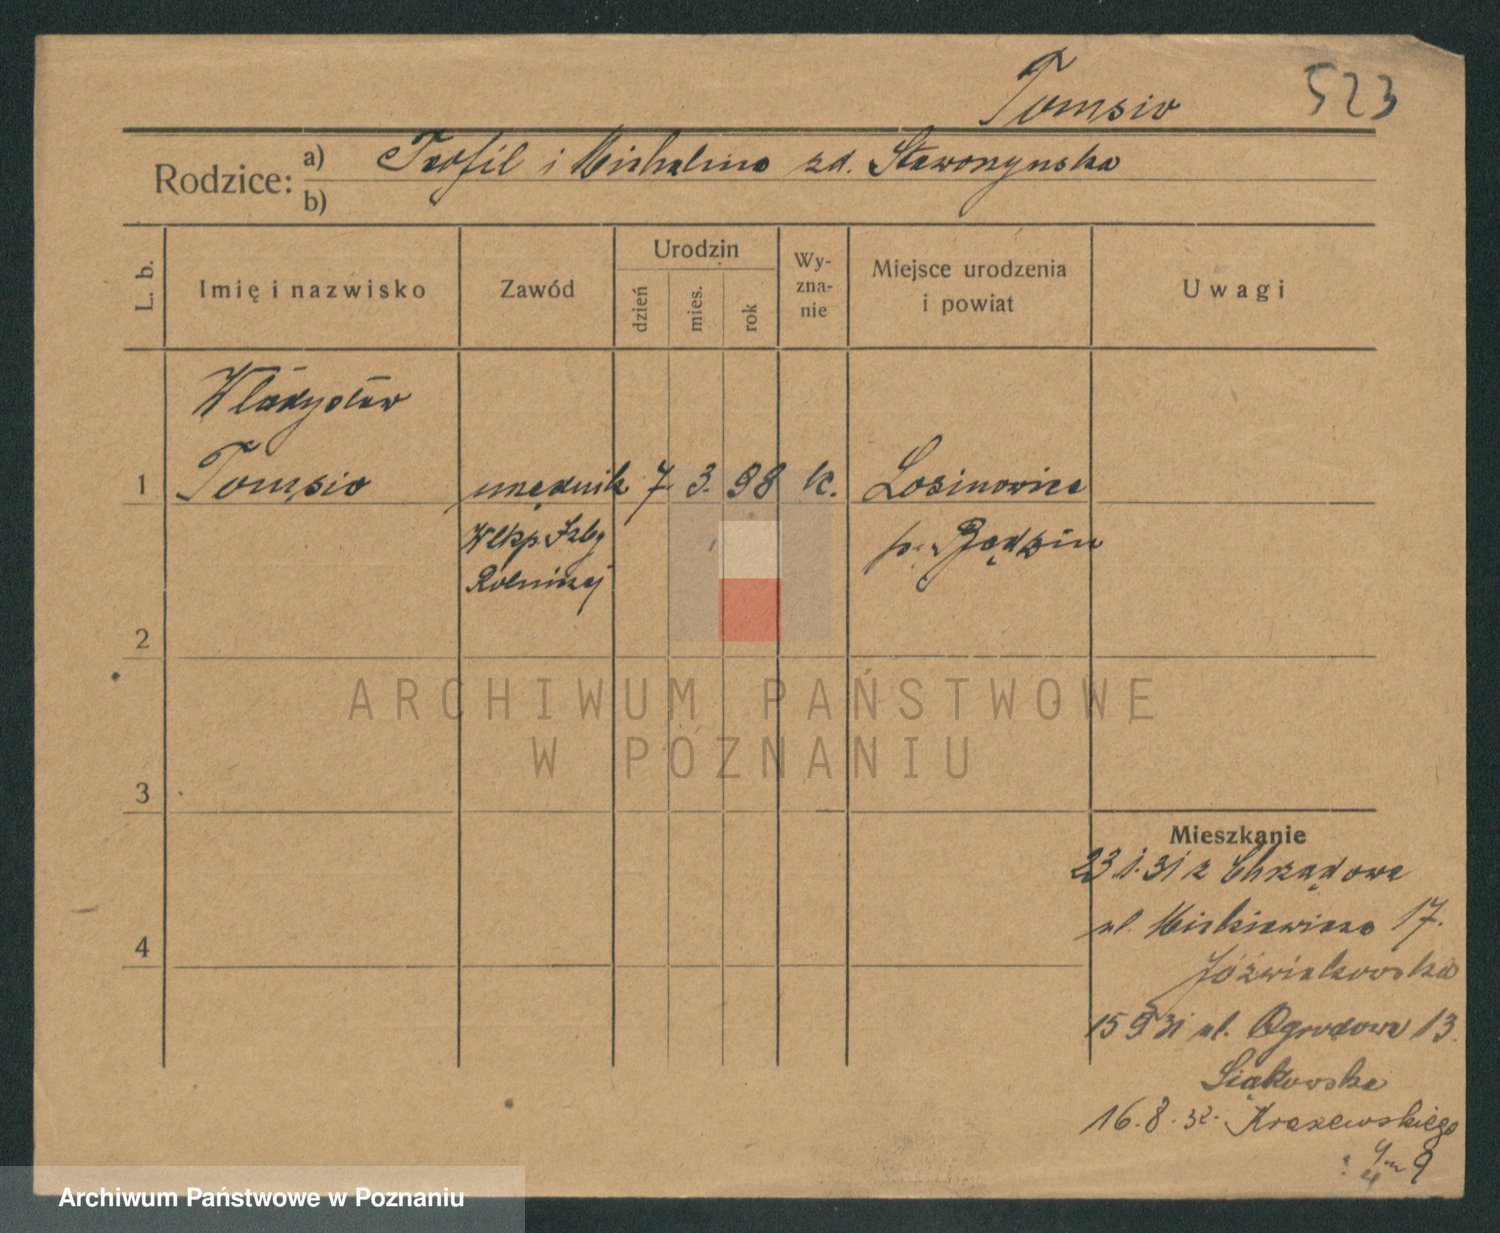 Tomsio
523
Rodzice:
a) Teofil i Michalina zd. Stawonynska
b)
L. b.
Imię i nazwisko
Zawód
Urodzin
dzień
mies.
rok
Wy-
zna-
nie
Miejsce urodzenia
i powiat
Uwagi
Władysław
1 Tomsio urzędnik 7. 3. 98 k. Losinowice
Wlkp. Izby p. Będzin
Rolniczej
2
ARCHIWUM PAŃSTWOWE
W POZNANIU
3
Mieszkanie
23.1.31 z Chrządowa
ul. Mickiewicza 17.
4
Jóźwiakowska
15 9 31 ul. Ogrodowa 13.
Siąkowska
16. 8. 32. Kraszewskiego
9
Archiwum Państwowe w Poznaniu